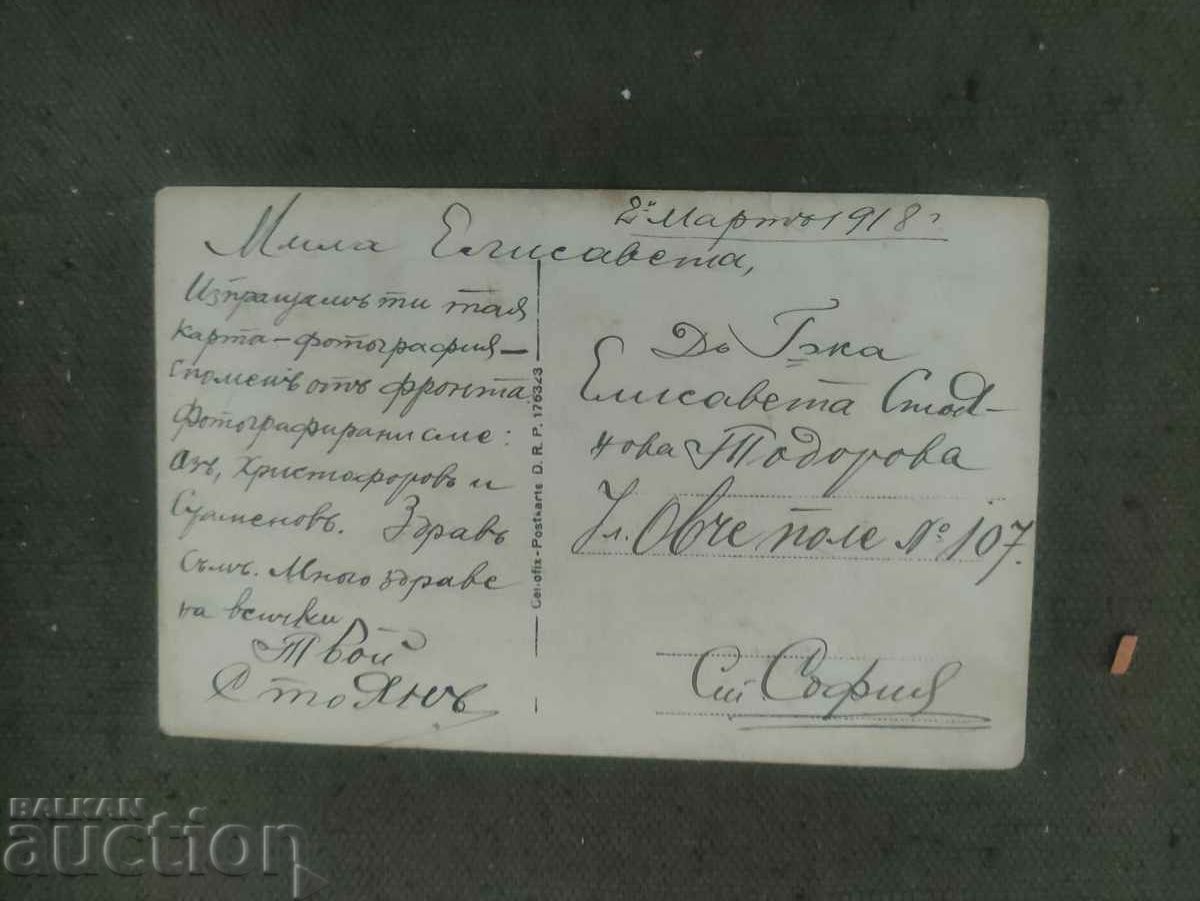 2й Мартъ 1918 г.
Мила Елисавета,
Изпращамъ ти тая
карта-фотография-
споменъ отъ фронта.
Фотографирани сме:
Азъ, Христофоровъ и
Стаменовъ. Здравъ
съмъ. Много здраве
на всички
Твой
Стоянъ
Cellofix-Postkarte D. R. P. 176323
До Г-жа
Елисавета Стоя-
нова Тодорова
Ул. Овче поле № 107.
София
BALKAN
auction